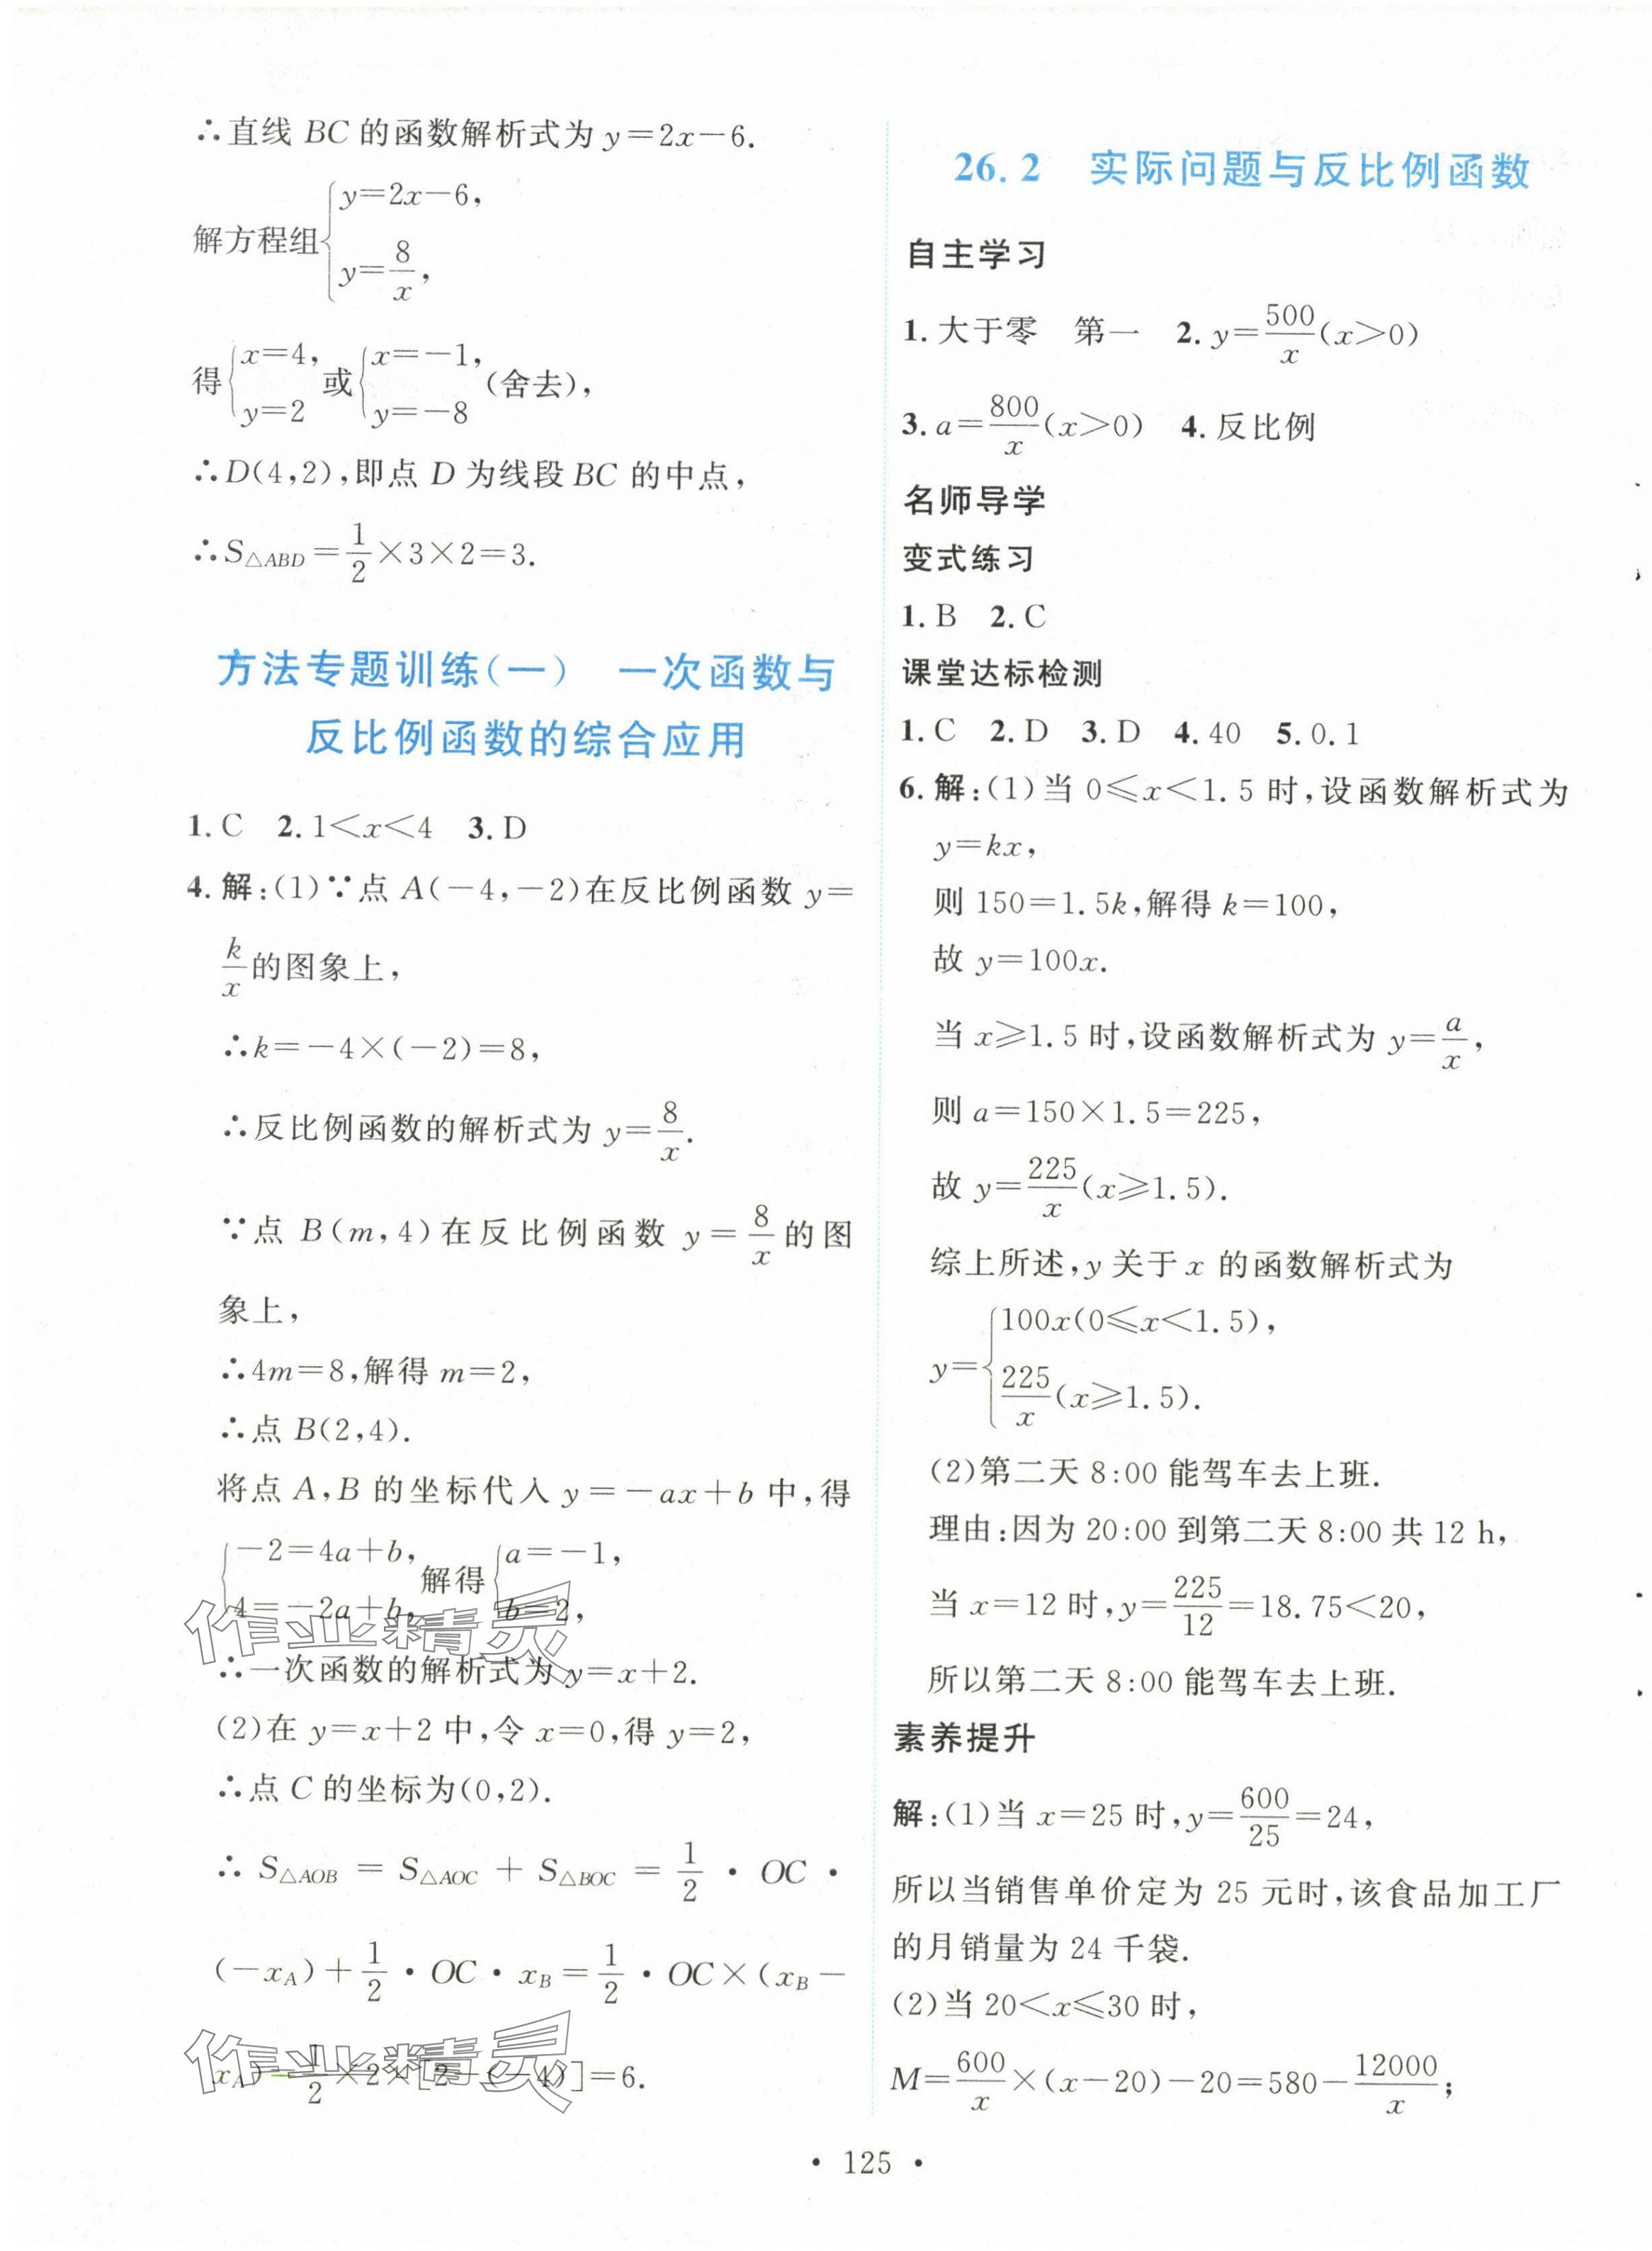 ∴直线 BC 的函数解析式为 y=2x-6.
解方程组{y=2x-6,
y=8/x,
得{x=4, y=2 或{x=-1, y=-8 (舍去),
∴D(4,2),即点 D 为线段 BC 的中点,
∴S△ABD=1/2×3×2=3.
方法专题训练(一) 一次函数与
反比例函数的综合应用
1.C 2.1<x<4 3.D
4.解:(1)∵点 A(-4,-2)在反比例函数 y=
k/x的图象上,
∴k=-4×(-2)=8,
∴反比例函数的解析式为 y=8/x.
∵点 B(m,4)在反比例函数 y=8/x的图
象上,
∴4m=8,解得 m=2,
∴点 B(2,4).
将点 A,B 的坐标代入 y=-ax+b 中,得
{-2=4a+b, 4=-2a+b, 解得{a=-1, b=2,
∴一次函数的解析式为 y=x+2.
(2)在 y=x+2 中,令 x=0,得 y=2,
∴点 C 的坐标为(0,2).
∴ S△AOB = S△AOC + S△BOC = 1/2 · OC ·
(-xA)+1/2·OC·xB=1/2·OC×(xB-
xA)=1/2×2×[2-(-4)]=6.
26.2 实际问题与反比例函数
自主学习
1.大于零 第一 2.y=500/x(x>0)
3.a=800/x(x>0) 4.反比例
名师导学
变式练习
1.B 2.C
课堂达标检测
1.C 2.D 3.D 4.40 5.0.1
6.解:(1)当 0≤x<1.5 时,设函数解析式为
y=kx,
则 150=1.5k,解得 k=100,
故 y=100x.
当 x≥1.5 时,设函数解析式为 y=a/x,
则 a=150×1.5=225,
故 y=225/x(x≥1.5).
综上所述,y 关于 x 的函数解析式为
y={100x(0≤x<1.5),
225/x(x≥1.5).
(2)第二天 8:00 能驾车去上班.
理由:因为 20:00 到第二天 8:00 共 12 h,
当 x=12 时,y=225/12=18.75<20,
所以第二天 8:00 能驾车去上班.
素养提升
解:(1)当 x=25 时,y=600/25=24,
所以当销售单价定为 25 元时,该食品加工厂
的月销量为 24 千袋.
(2)当 20<x≤30 时,
M=600/x×(x-20)-20=580-12000/x;
· 125 ·
作业精灵
作业精灵